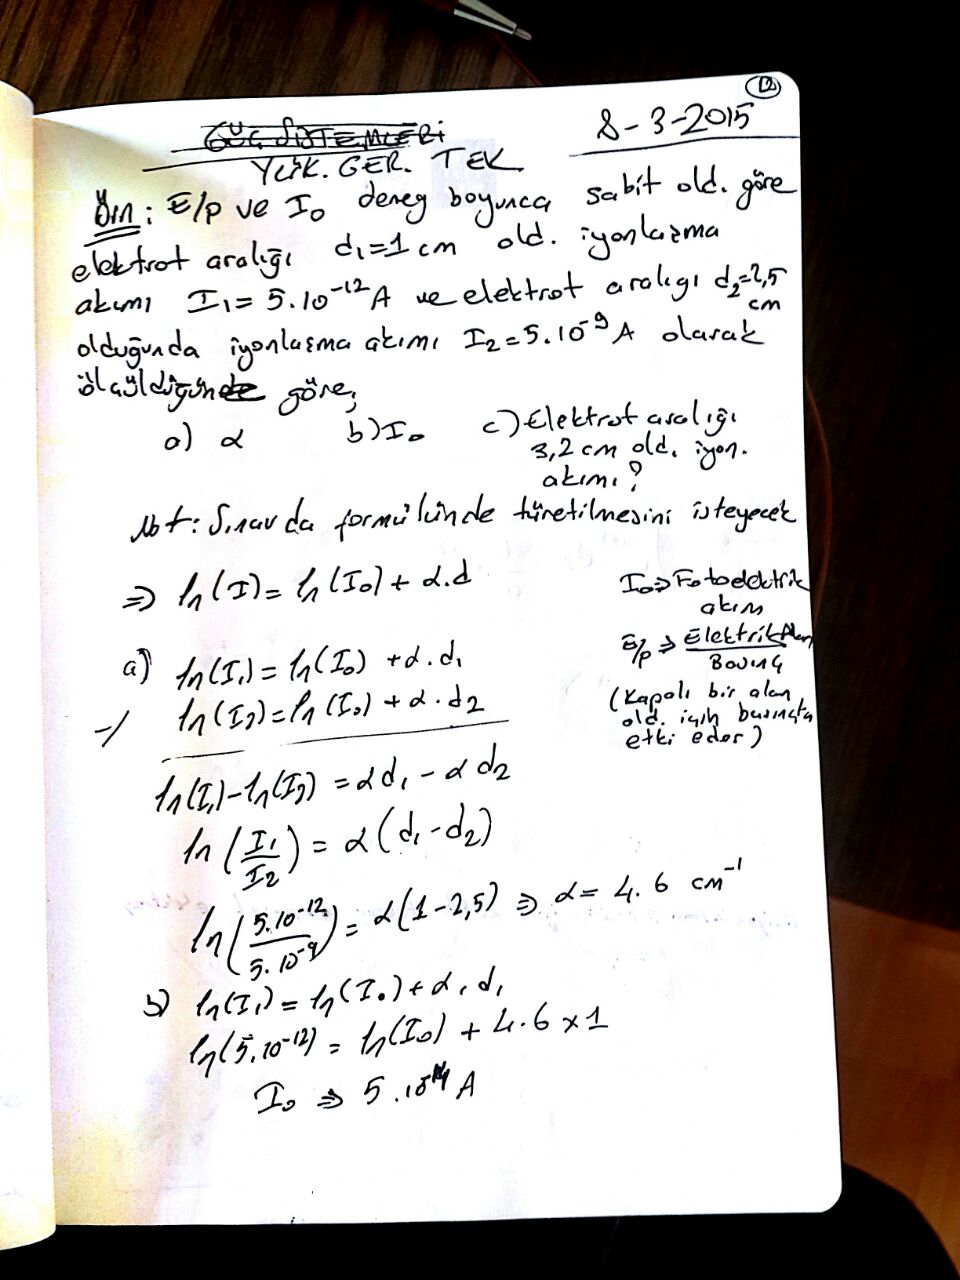 12
GÜÇ SİSTEMLERİ
8-3-2015
YÜK. GER. TEK
Örn: E/p ve I₀ deney boyunca sabit old. göre
elektrot aralığı d₁=1 cm old. iyonlaşma
akımı I₁= 5.10⁻¹² A ve elektrot aralığı d₂=2,5
cm
olduğunda iyonlaşma akımı I₂=5.10⁻⁹ A olarak
ölçüldüğünde göre;
a) α b) I₀ c) Elektrot aralığı
3,2 cm old. iyon.
akımı?
Not: Sınavda formülünde türetilmesini isteyecek
⇒ ln(I) = ln(I₀) + α.d
I₀ ⇒ Fotoelektrik
akım
E/p ⇒ Elektrik Alan
Basınç
(Kapalı bir alan
old. için basınçta
etki eder)
a) ln(I₁) = ln(I₀) + α.d₁
-/ ln(I₂) = ln(I₀) + α.d₂
ln(I₁)-ln(I₂) = αd₁ - αd₂
ln(I₁/I₂) = α(d₁-d₂)
ln(5.10⁻¹²/5.10⁻⁹) = α(1-2,5) ⇒ α = 4.6 cm⁻¹
b) ln(I₁) = ln(I₀) + α.d₁
ln(5.10⁻¹²) = ln(I₀) + 4.6 x 1
I₀ ⇒ 5.10⁻¹⁴ A